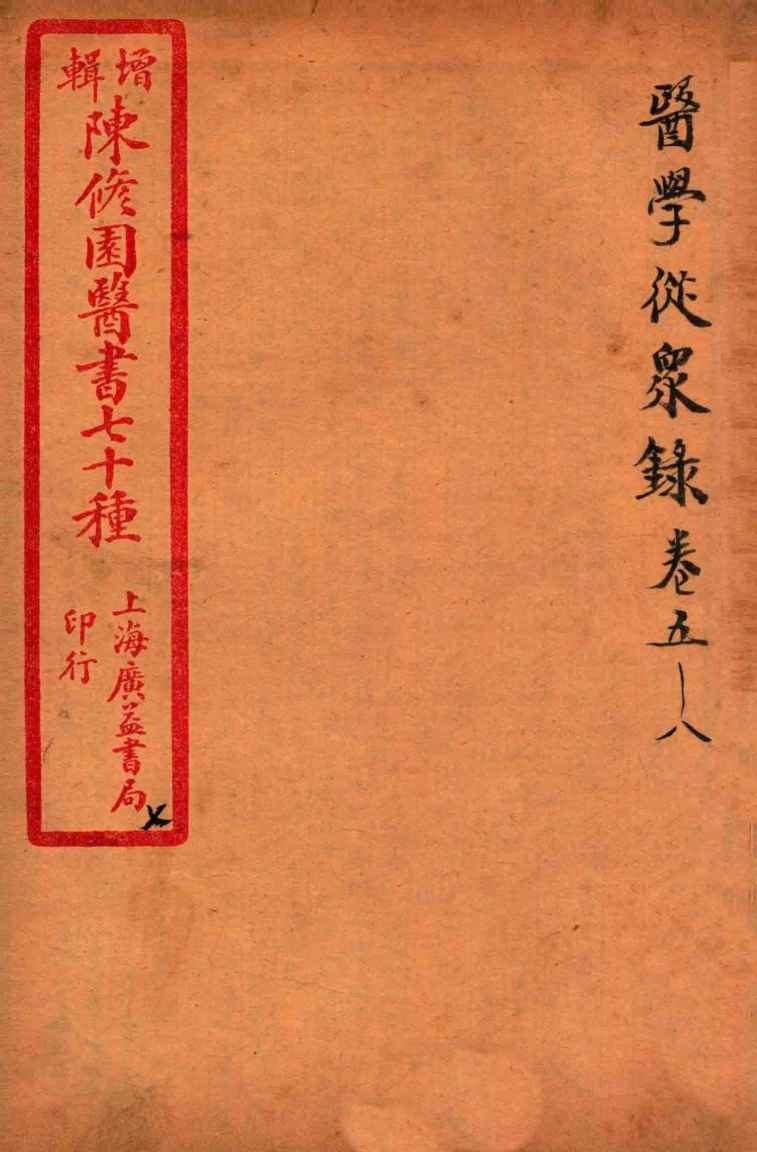 醫學從眾錄卷五—八
增輯
陳修園醫書七十種
上海廣益書局
印行